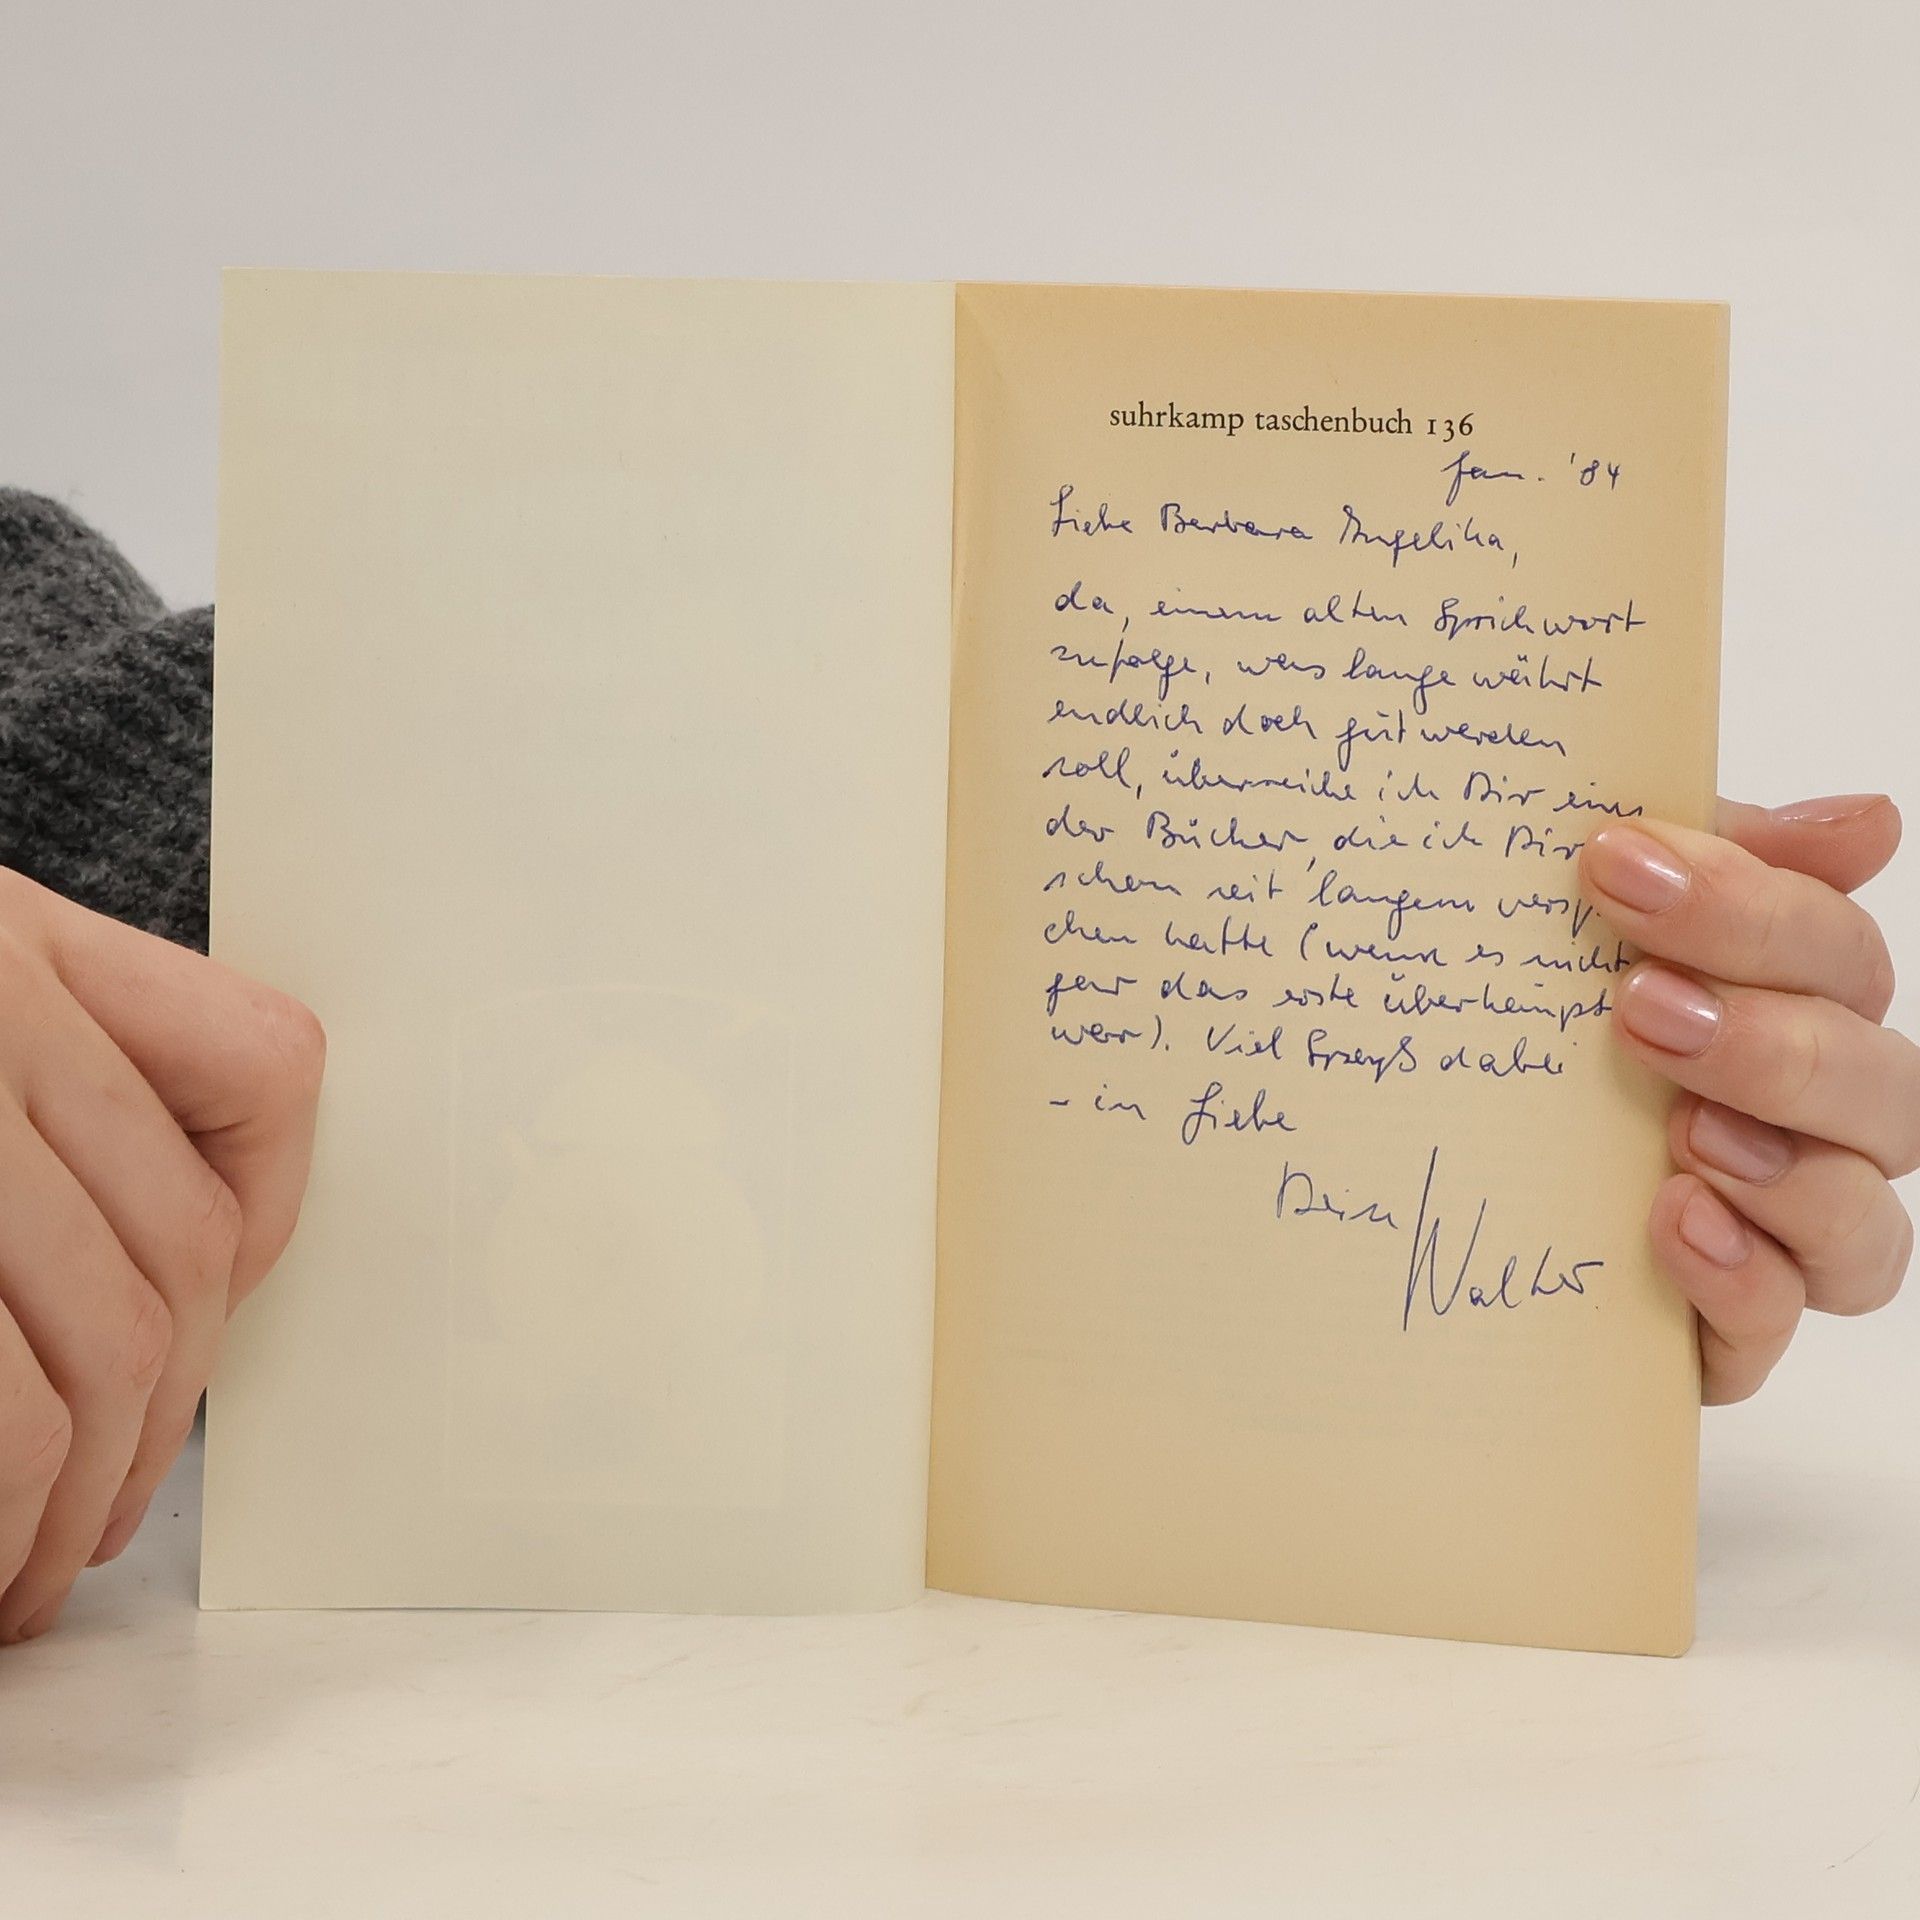 suhrkamp taschenbuch 136
Jan. '84
Liebe Barbara Angelika,
da, einem alten Sprichwort
zufolge, was lange währt
endlich doch gut werden
soll, überreiche ich Dir eins
der Bücher, die ich Dir
schon seit langem versp
chen hatte (wenn es nicht
gar das erste überhaupt
war). Viel Spaß dabei
- in Liebe
Dein Walter